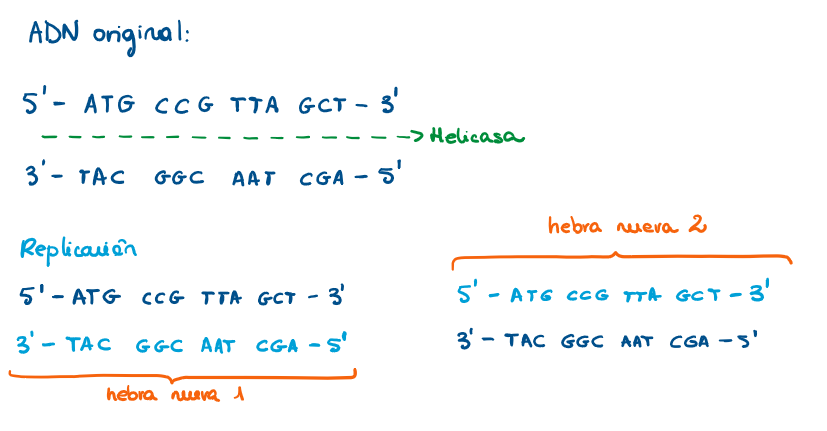 ADN original:
5'- ATG CCG TTA GCT - 3'
Helicasa
3'- TAC GGC AAT CGA - 5'
Replicación
5'- ATG CCG TTA GCT - 3'
3'- TAC GGC AAT CGA - 5'
hebra nueva 1
hebra nueva 2
5' - ATG CCG TTA GCT - 3'
3' - TAC GGC AAT CGA - 5'